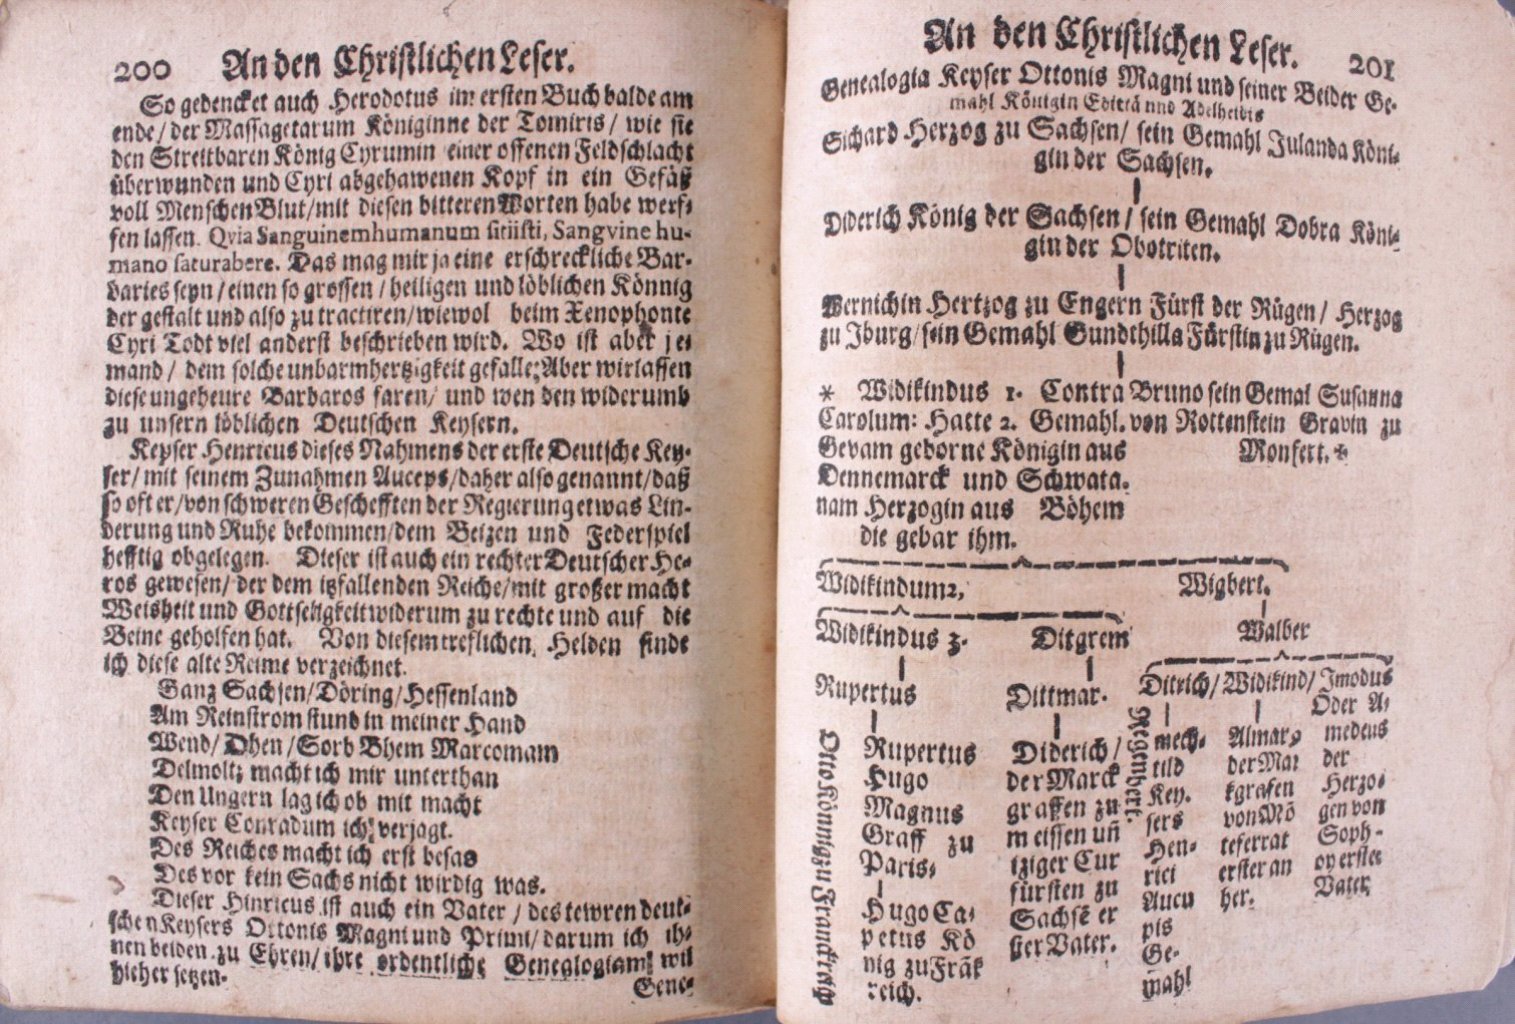 200 An den Christlichen Leser.
So gedencket auch Herodotus im ersten Buch balde am
ende/ der Massagetarum Königinne der Tomiris/ wie sie
den Streitbaren König Cyrumin einer offenen Feldschlacht
überwunden und Cyri abgehawenen Kopf in ein Gefäß
voll Menschen Blut/mit diesen bitteren Worten habe werf-
fen lassen. Qvia Sanguinem humanum sitiisti, Sangvine hu-
mano saturabere. Das mag mir ja eine erschreckliche Bar-
baries seyn/einen so grossen/heiligen und löblichen Könnig
der gestalt und also zu tractiren/wiewol beim Xenophonte
Cyri Todt viel anderst beschrieben wird. Wo ist aber je-
mand/ dem solche unbarmhertzigkeit gefalle; Aber wir lassen
diese ungeheure Barbaros faren/ und wenden widerumb
zu unsern löblichen Deutschen Keysern.
Keyser Henricus dieses Nahmens der erste Deutsche Key-
ser/mit seinem Zunahmen Auceps/daher also genannt/daß
so oft er/von schweren Geschefften der Regierung etwas Lin-
derung und Ruhe bekommen/dem Beizen und Federspiel
hefftig obgelegen. Dieser ist auch ein rechter Deutscher He-
ros gewesen/der dem itzfallenden Reiche/mit großer macht
Weisheit und Gottseligkeit widerum zu rechte und auf die
Beine geholfen hat. Von diesem treflichen Helden finde
ich diese alte Reime verzeichnet.
Ganz Sachsen/Döring/Hessenland
Am Reinstrom stund in meiner Hand
Wend/ Dhen/Sorb Bhem Marcomam
Delmoltz macht ich mir unterthan
Den Ungern lag ich ob mit macht
Keyser Conradum ich verjagt.
Des Reiches macht ich erst besas
Des vor kein Sachs nicht wirdig was.
Dieser Hinricus ist auch ein Vater/ des tewren deut-
schen Keysers Ottonis Magni und Primi/darum ich ih-
nen beiden zu Ehren/ihre ordentliche Genealogiam wil
hieher setzen.
Gene-
An den Christlichen Leser. 201
Genealogia Keyser Ottonis Magni und seiner Beider Ge-
mahl Königin Edittä und Adelheidis
Sichard Herzog zu Sachsen/ sein Gemahl Julanda Köni-
gin der Sachsen.
Diderich König der Sachsen/ sein Gemahl Dobra Köni-
gin der Obotriten.
Wernichin Hertzog zu Engern Fürst der Rügen/ Herzog
zu Iburg/sein Gemahl Gundthilla Fürstin zu Rügen.
* Widikindus 1. Contra Bruno sein Gemal Susanna
Carolum: Hatte 2. Gemahl. von Rottenstein Gravin zu
Gevam geborne Königin aus Monfert.*
Dennemarck und Schwata-
nam Herzogin aus Böhem
die gebar ihm.
Widikindum 2, Wigbert.
Widikindus 3. Ditgrem Walber
Rupertus Dittmar. Ditrich/ Widikind/ Imodus
Oder A-
medeus
der
Herzo-
gen von
Soph-
oy erster
Vater.
Otto Könnig zu Franckreich
Rupertus
Hugo
Magnus
Graff zu
Paris.
Hugo Ca-
petus Kö
nig zu Frãk
reich.
Diderich/
der Marck
graffen zu
meissen uñ
itziger Cur
fürsten zu
Sachsẽ er
ster Vater.
Regenbert.
mech-
tild
Key-
sers
Hen-
rici
Aucu
pis
Ge-
mahl
Almar,
der Mar
kgrafen
von Mõ
teferrat
erster an
her.